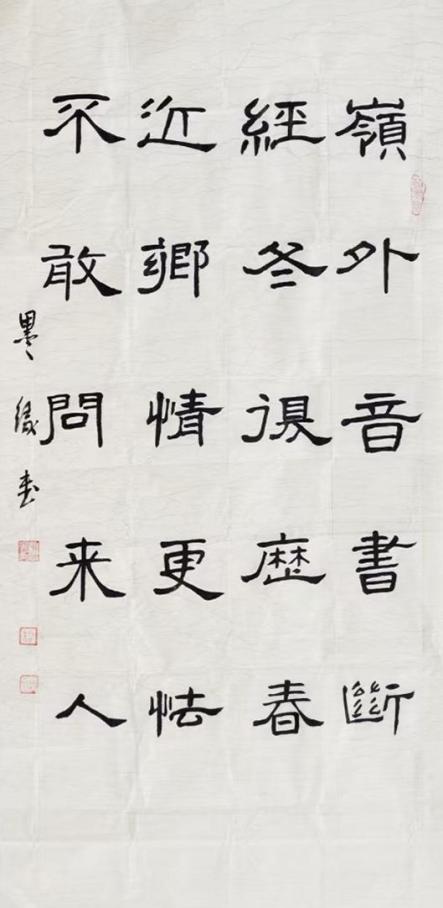 嶺外音書斷
經冬復歴春
近鄉情更怯
不敢問来人
墨缘书